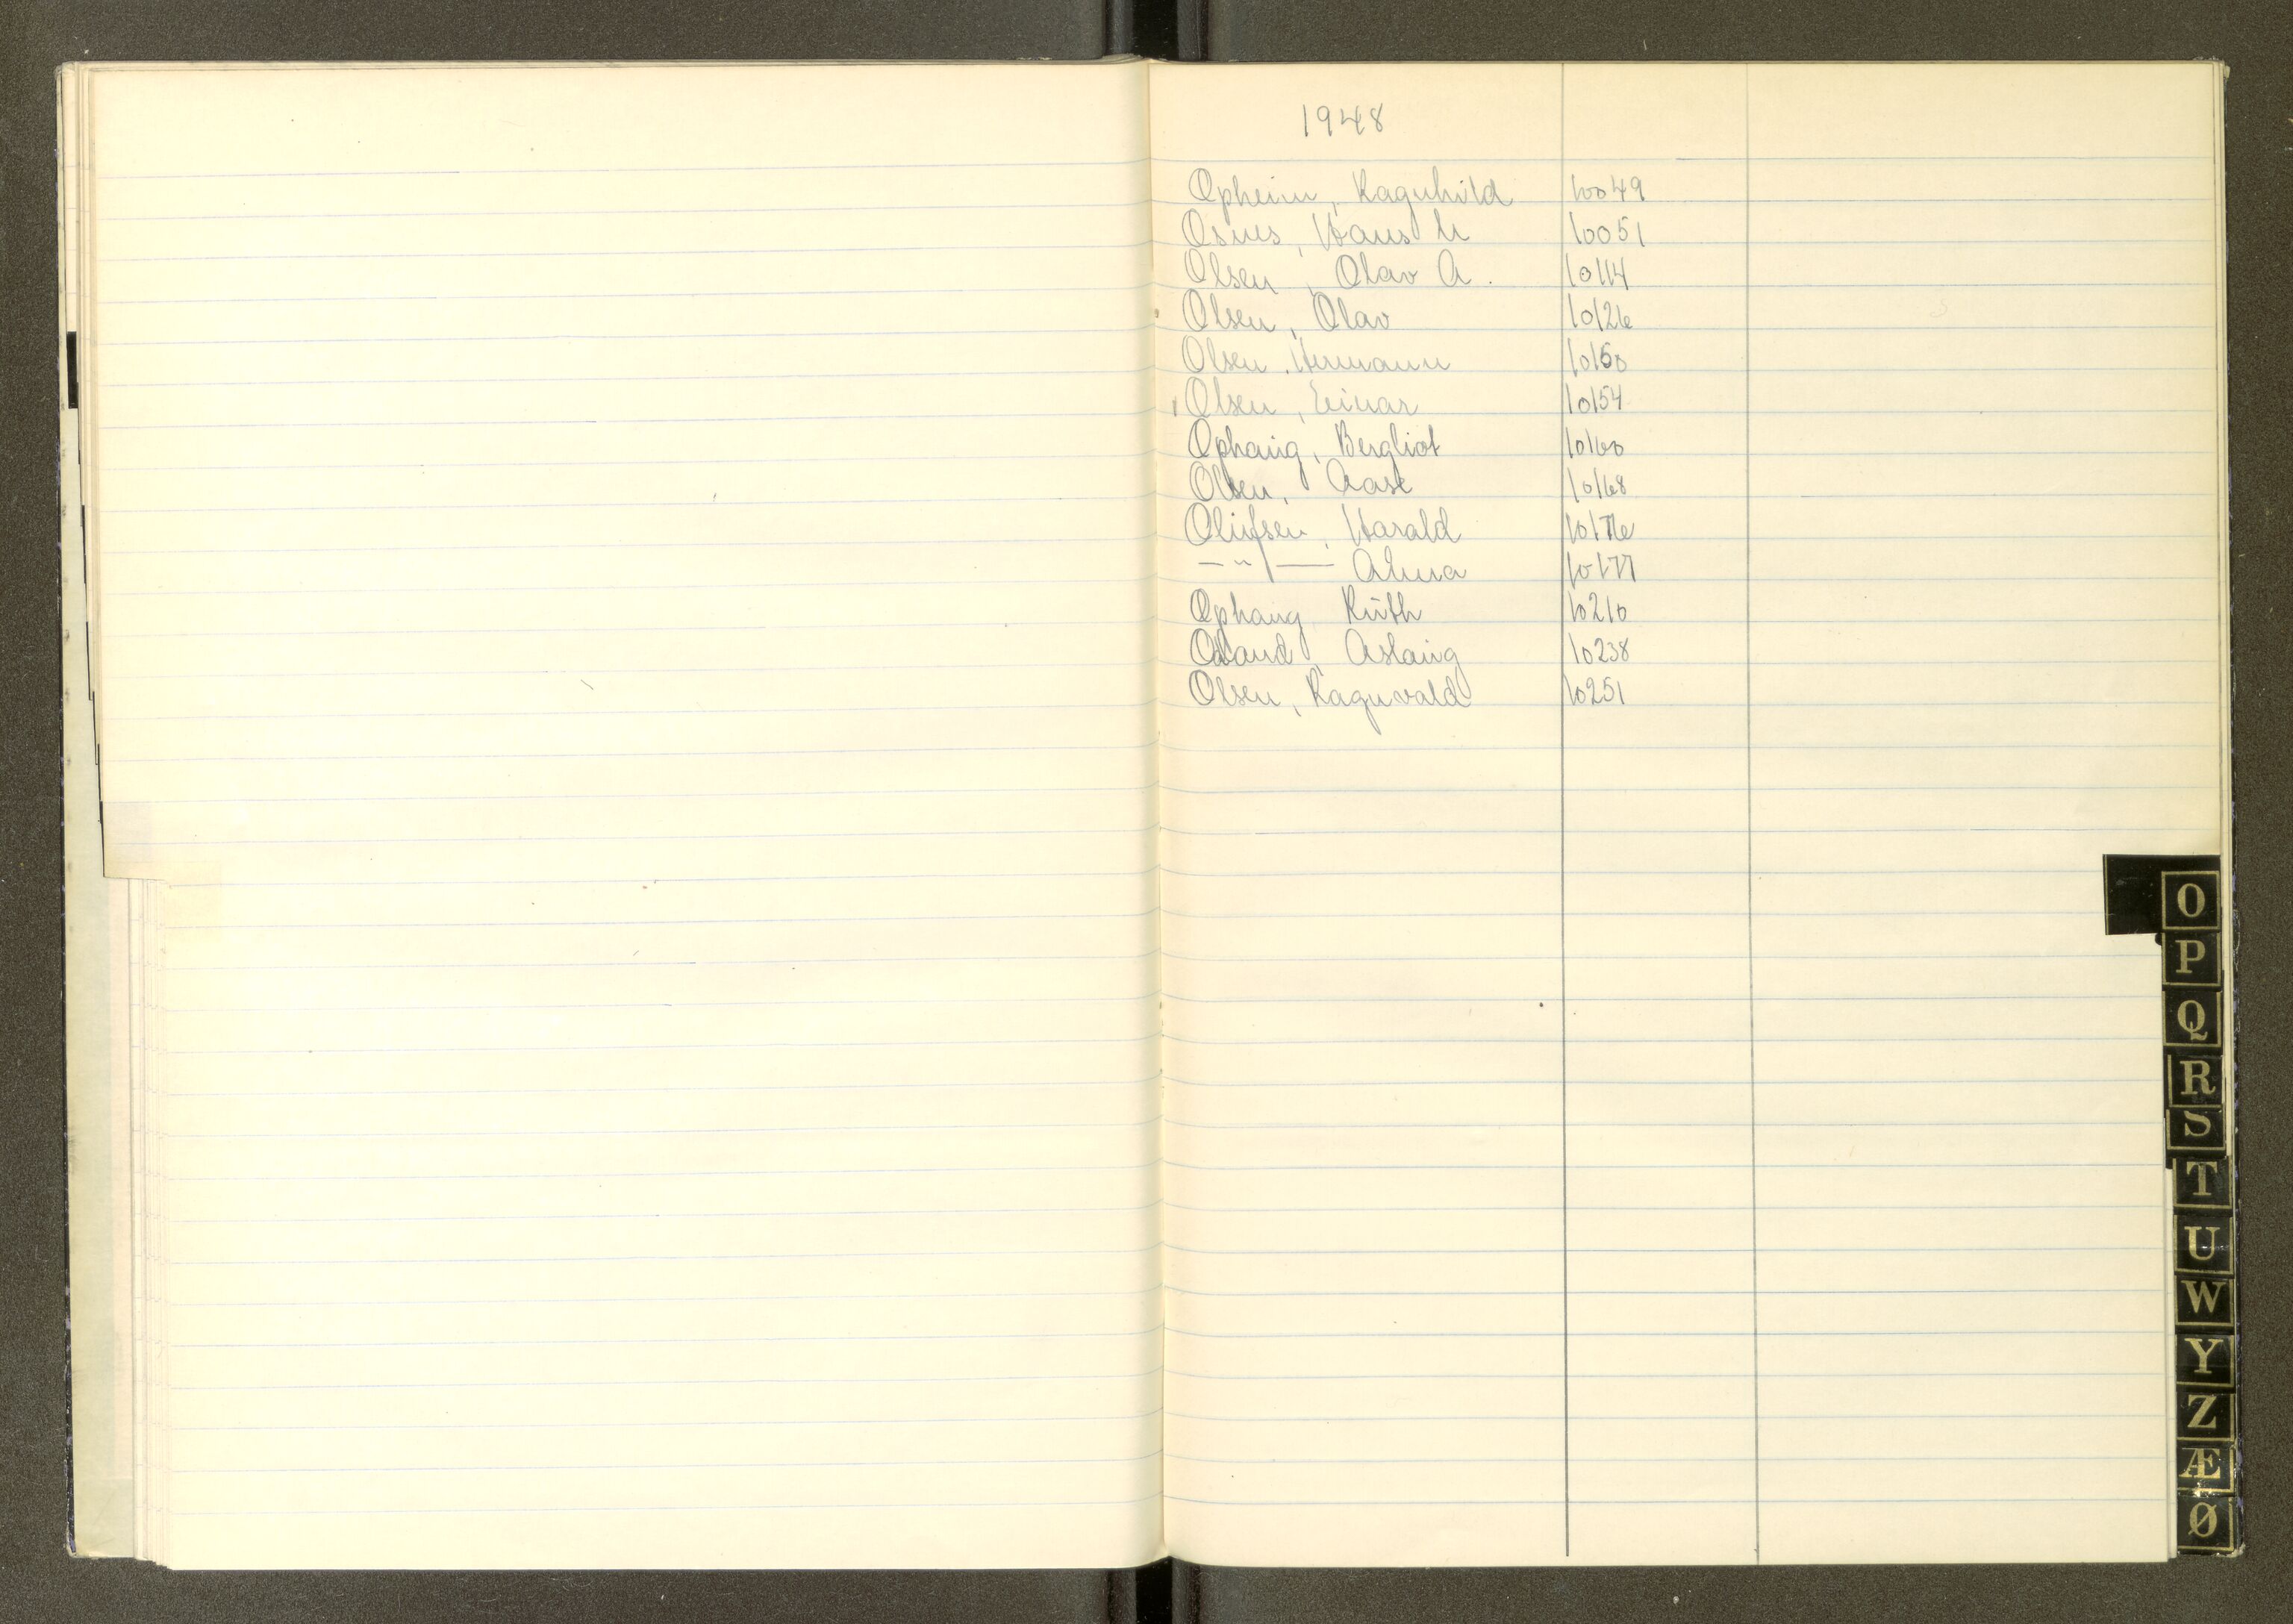 1948
Opheim, Ragnhild 10049
Osnes, Hans M 10051
Olsen, Olav A. 10114
Olsen, Olav 10126
Olsen, Hermann 10150
Olsen, Einar 10154
Ophaug, Bergliot 10160
Olsen, Aase 10168
Olufsen, Harald 10176
— " — Alma 10177
Ophaug Ruth 10210
Aslaug 10238
Olsen, Ragnvald 10251
O
P
Q
R
S
T
U
W
Y
Z
Æ
Ø